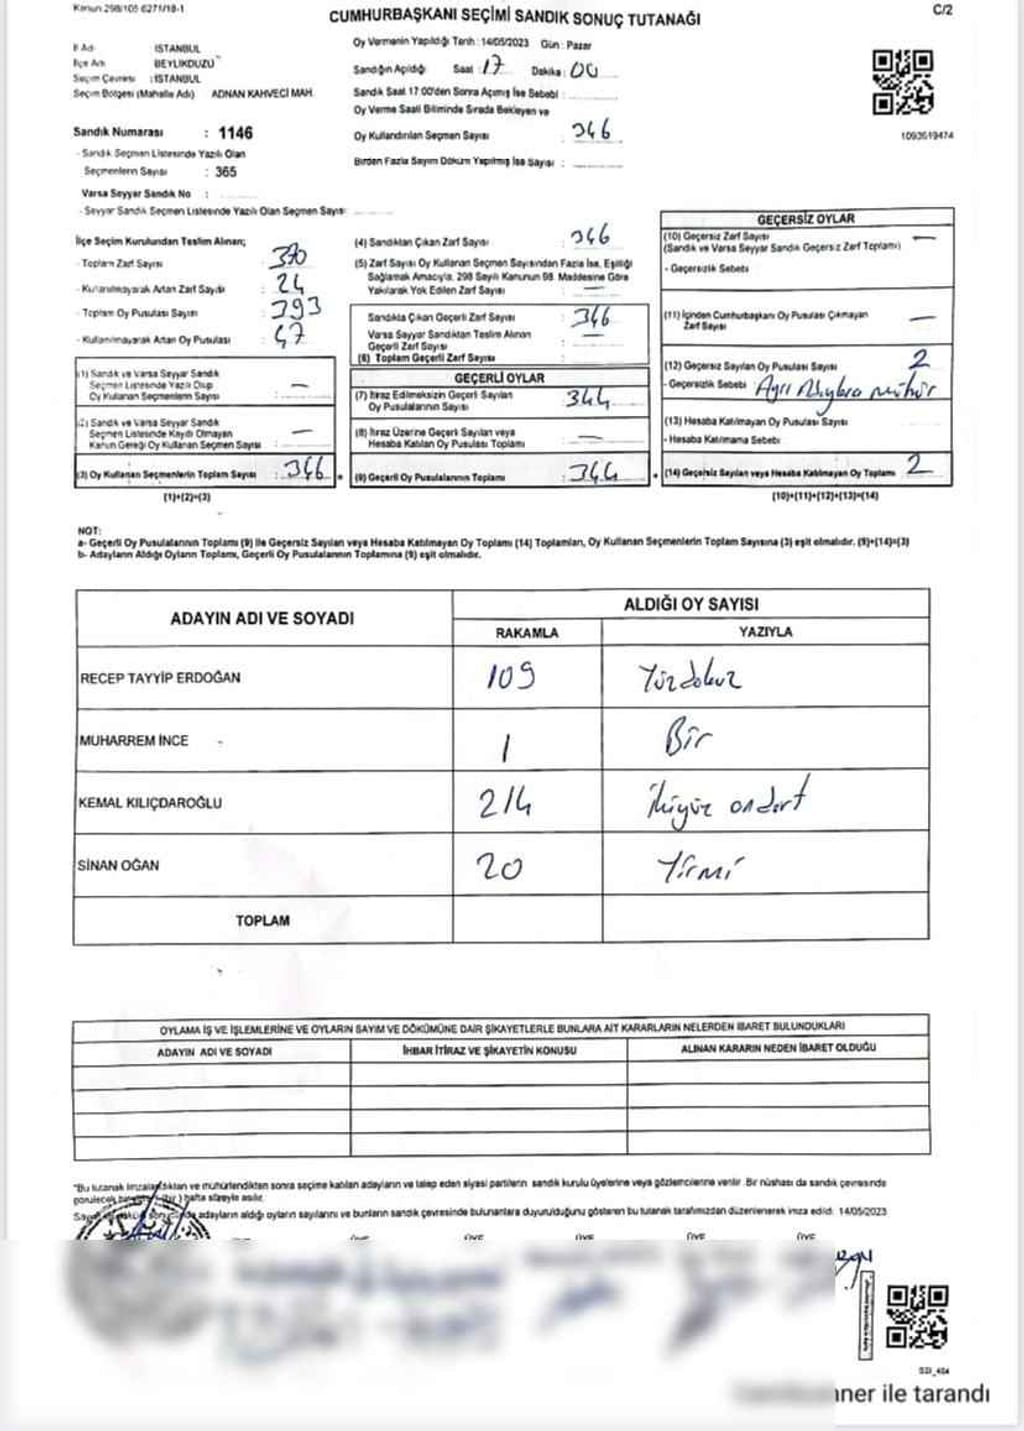 Kanun 298/105 6271/18-1
CUMHURBAŞKANI SEÇİMİ SANDIK SONUÇ TUTANAĞI
C/2
İl Adı : İSTANBUL
İlçe Adı : BEYLİKDÜZÜ
Seçim Çevresi : İSTANBUL
Seçim Bölgesi (Mahalle Adı) ADNAN KAHVECİ MAH.
Sandık Numarası : 1146
- Sandık Seçmen Listesinde Yazılı Olan
Seçmenlerin Sayısı : 365
Varsa Seyyar Sandık No :
- Seyyar Sandık Seçmen Listesinde Yazılı Olan Seçmen Sayısı
Oy Vermenin Yapıldığı Tarih : 14/05/2023 Gün : Pazar
Sandığın Açıldığı Saat : 17 Dakika : 00
Sandık Saat 17:00'den Sonra Açımış İse Sebebi :
Oy Verme Saati Bitiminde Sırada Bekleyen ve
Oy Kullandırılan Seçmen Sayısı : 346
Birden Fazla Sayım Döküm Yapılmış İse Sayısı :
1093519474
İlçe Seçim Kurulundan Teslim Alınan;
- Toplam Zarf Sayısı : 370
- Kullanılmayarak Artan Zarf Sayısı : 24
- Toplam Oy Pusulası Sayısı : 393
- Kullanılmayarak Artan Oy Pusulası : 47
(1) Sandık ve Varsa Seyyar Sandık
Seçmen Listesinde Yazılı Olup
Oy Kullanan Seçmenlerin Sayısı : —
(2) Sandık ve Varsa Seyyar Sandık
Seçmen Listesinde Kaydı Olmayan
Kanun Gereği Oy Kullanan Seçmen Sayısı : —
(3) Oy Kullanan Seçmenlerin Toplam Sayısı : 346
(1)+(2)=(3)
(4) Sandıktan Çıkan Zarf Sayısı : 346
(5) Zarf Sayısı Oy Kullanan Seçmen Sayısından Fazla İse, Eşitliği
Sağlamak Amacıyla, 298 Sayılı Kanunun 98. Maddesine Göre
Yakılarak Yok Edilen Zarf Sayısı : —
Sandıkta Çıkan Geçerli Zarf Sayısı : 346
Varsa Seyyar Sandıktan Teslim Alınan
Geçerli Zarf Sayısı : —
(6) Toplam Geçerli Zarf Sayısı :
GEÇERLİ OYLAR
(7) İtiraz Edilmeksizin Geçerli Sayılan
Oy Pusulalarının Sayısı : 344
(8) İtiraz Üzerine Geçerli Sayılan veya
Hesaba Katılan Oy Pusulası Toplamı : —
(9) Geçerli Oy Pusulalarının Toplamı : 344
GEÇERSİZ OYLAR
(10) Geçersiz Zarf Sayısı : —
(Sandık ve Varsa Seyyar Sandık Geçersiz Zarf Toplamı)
- Geçersizlik Sebebi :
(11) İçinden Cumhurbaşkanı Oy Pusulası Çıkmayan
Zarf Sayısı : —
(12) Geçersiz Sayılan Oy Pusulası Sayısı : 2
- Geçersizlik Sebebi : Ayrı Adaylara mühür
(13) Hesaba Katılmayan Oy Pusulası Sayısı :
- Hesaba Katılmama Sebebi :
(14) Geçersiz Sayılan veya Hesaba Katılmayan Oy Toplamı : 2
(10)+(11)+(12)+(13)=(14)
NOT:
a- Geçerli Oy Pusulalarının Toplamı (9) ile Geçersiz Sayılan veya Hesaba Katılmayan Oy Toplamı (14) Toplamları, Oy Kullanan Seçmenlerin Toplam Sayısına (3) eşit olmalıdır. (9)+(14)=(3)
b- Adayların Aldığı Oyların Toplamı, Geçerli Oy Pusulalarının Toplamına (9) eşit olmalıdır.
ADAYIN ADI VE SOYADI
ALDIĞI OY SAYISI
RAKAMLA YAZIYLA
RECEP TAYYİP ERDOĞAN 109 Yüzdokuz
MUHARREM İNCE 1 Bir
KEMAL KILIÇDAROĞLU 214 İkiyüz ondört
SİNAN OĞAN 20 Yirmi
TOPLAM
OYLAMA İŞ VE İŞLEMLERİNE VE OYLARIN SAYIM VE DÖKÜMÜNE DAİR ŞİKAYETLERLE BUNLARA AİT KARARLARIN NELERDEN İBARET BULUNDUKLARI
ADAYIN ADI VE SOYADI İHBAR İTİRAZ VE ŞİKAYETİN KONUSU ALINAN KARARIN NEDEN İBARET OLDUĞU
"Bu tutanak imzalandıktan ve mühürlendikten sonra seçime katılan adayların ve talep eden siyasi partilerin sandık kurulu üyelerine veya gözlemcilerine verilir. Bir nüshası da sandık çevresinde
(bir) hafta süreyle asılır.
adayların aldığı oyların sayılarını ve bunların sandık çevresinde bulunanlara duyurulduğunu gösteren bu tutanak tarafımızdan düzenlenerek imza edildi. 14/05/2023
ÜYE ÜYE ÜYE ÜYE ÜYE
ner ile tarandı